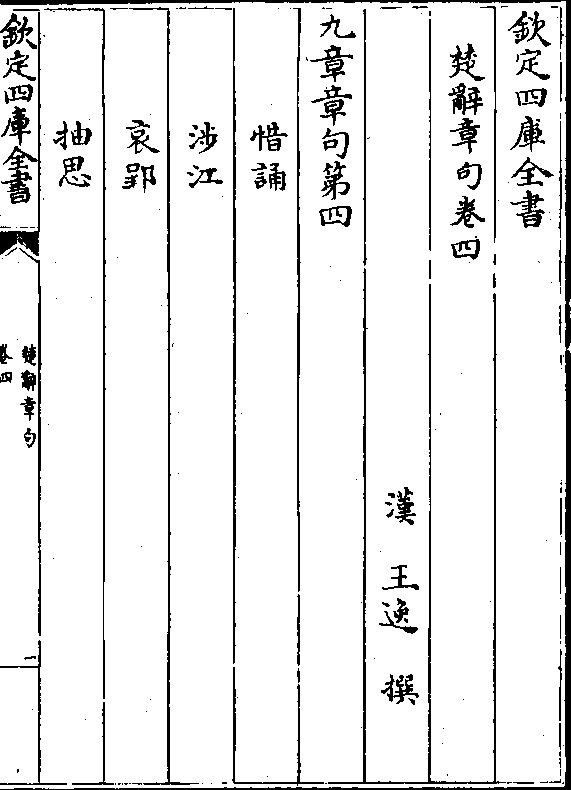 欽定四庫全書
楚辭章句卷四
漢 王逸 撰
九章章句第四
惜誦
涉江
哀郢
抽思
欽定四庫全書
楚辭章句
卷四
一